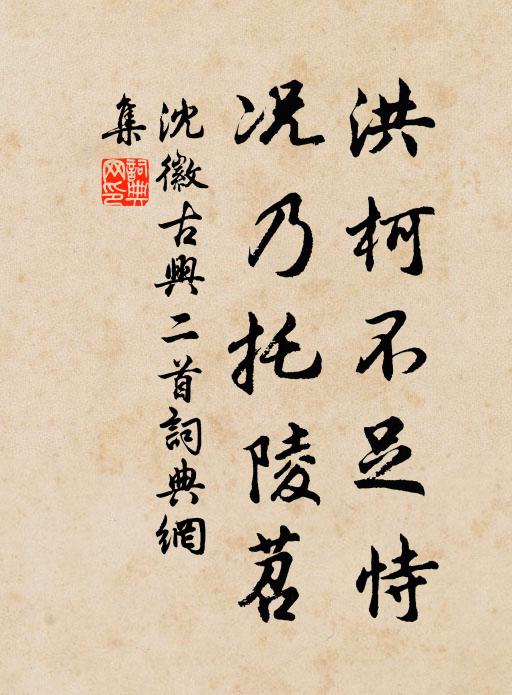 洪柯不足恃
况乃托陵苕
沈徽古興二首詞典網
集
詞典
网印